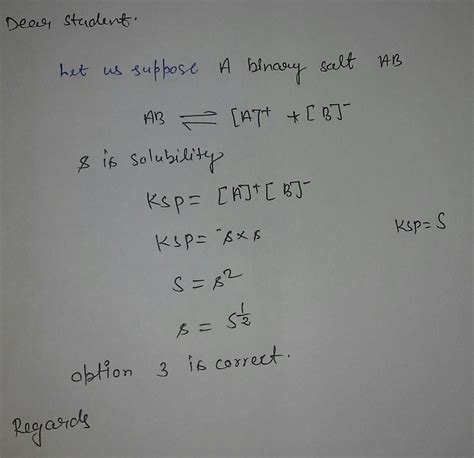 Dear Student.
Let us suppose A binary salt AB
AB ⇌ [A]+ + [B]-
s is solubility
Ksp = [A]+ [B]-
Ksp = s×s
Ksp = S
S = s²
s = S^1/2
option 3 is correct.
Regards